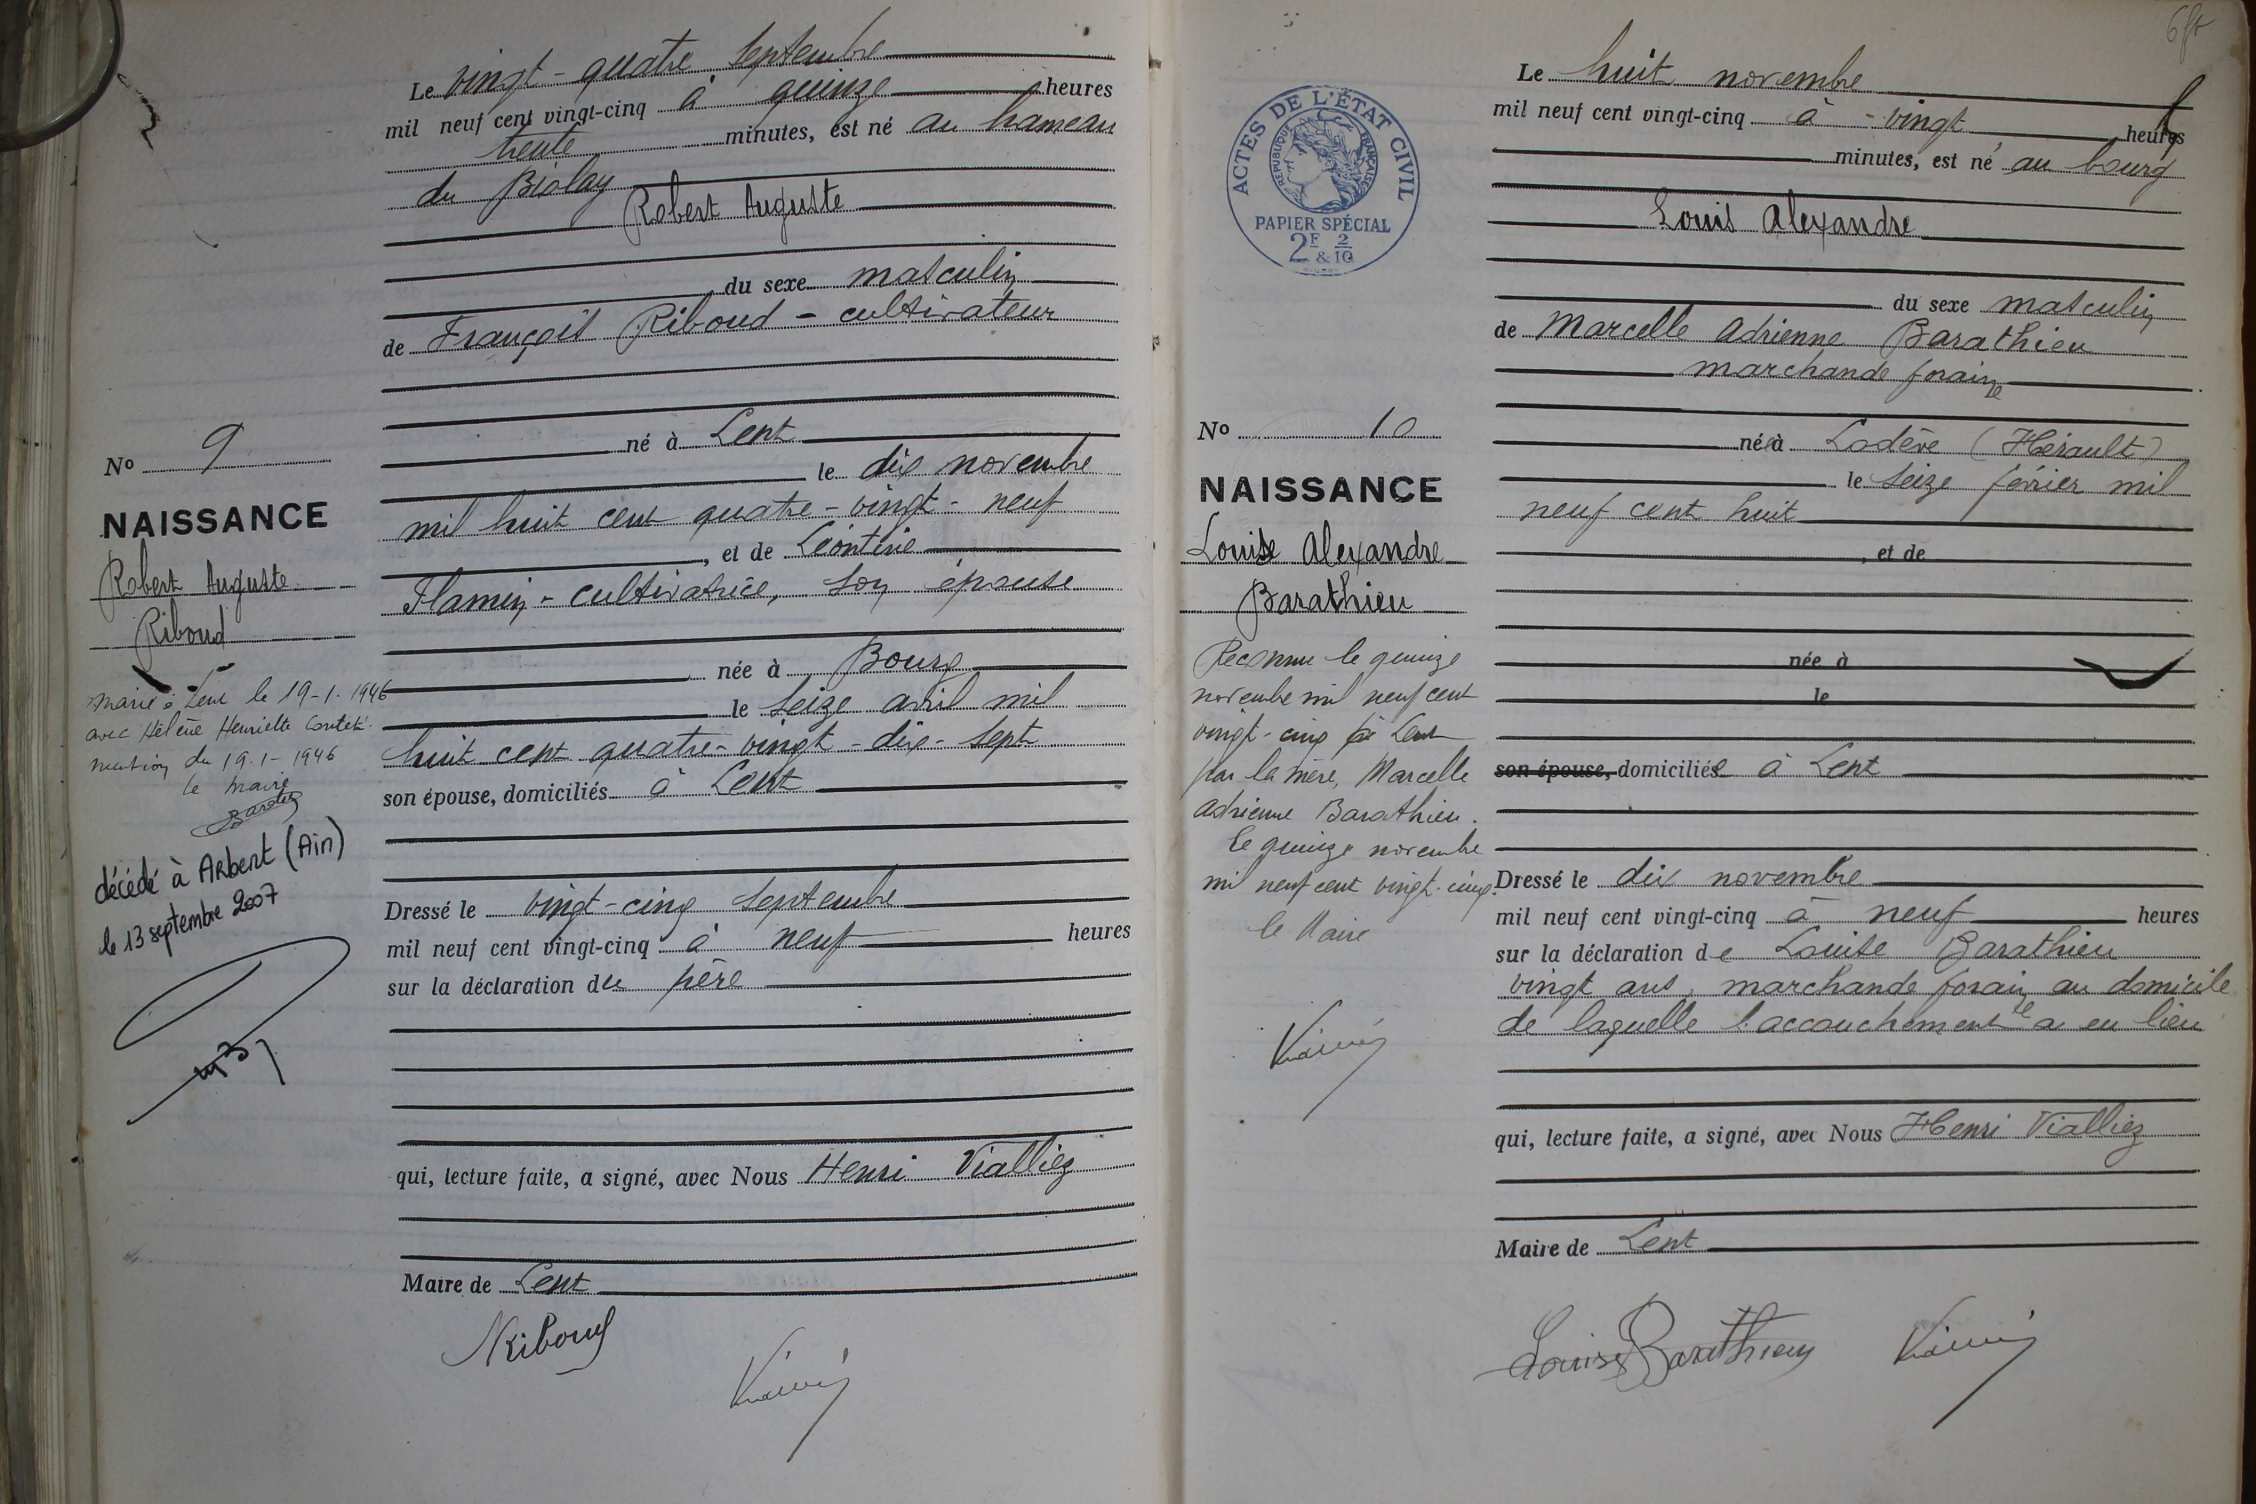 Le vingt-quatre septembre
mil neuf cent vingt-cinq à quinze heures
trente minutes, est né au hameau
du Biolay
Robert Auguste
du sexe masculin
de François Riboud - cultivateur
né à Lent
le dix novembre
mil huit cent quatre-vingt-neuf
, et de Léontine
Flamin - cultivatrice, son épouse
née à Bourg
le seize avril mil
huit cent quatre-vingt-dix-sept
son épouse, domiciliés à Lent
Dressé le vingt-cinq septembre
mil neuf cent vingt-cinq à neuf heures
sur la déclaration du père
qui, lecture faite, a signé, avec Nous Henri Vialliez
Maire de Lent
Riboud
No 9
NAISSANCE
Robert Auguste
Riboud
marié à Lent le 19-1-1946
avec Hélène Henriette
mention du 19-1-1946
le maire
décédé à Arbent (Ain)
le 13 septembre 2007
Le huit novembre
mil neuf cent vingt-cinq à vingt heures
minutes, est né au bourg
Louis Alexandre
du sexe masculin
de Marcelle Adrienne Barathieu
marchande foraine
née à Lodève (Hérault)
le seize février mil
neuf cent huit
, et de
née à
le
son épouse, domiciliée à Lent
Dressé le dix novembre
mil neuf cent vingt-cinq à neuf heures
sur la déclaration de Louise Barathieu
vingt ans, marchande foraine au domicile
de laquelle l'accouchement a eu lieu
qui, lecture faite, a signé, avec Nous Henri Vialliez
Maire de Lent
Louise Barathieu
ACTES DE L'ÉTAT CIVIL
RÉPUBLIQUE FRANÇAISE
PAPIER SPÉCIAL
2F & 2/10
No 10
NAISSANCE
Louis Alexandre
Barathieu
Reconnu le quinze
novembre mil neuf cent
vingt-cinq à Lent
par la mère, Marcelle
Adrienne Barathieu.
Le quinze novembre
mil neuf cent vingt-cinq.
le Maire